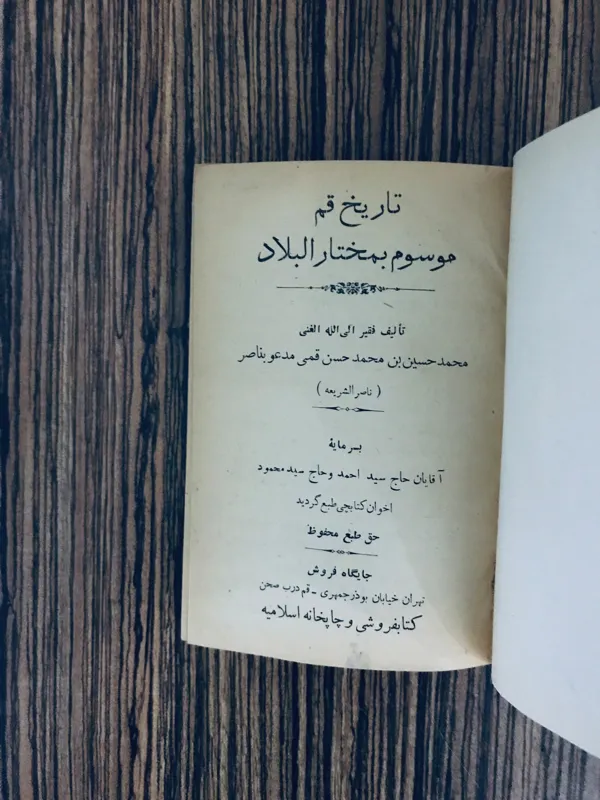 تاریخ قم
موسوم بمختار البلاد
تألیف فقیر الی الله الغنی
محمد حسین بن محمد حسن قمی مدعو بناصر
( ناصر الشریعه )
بسرمایهٔ
آقایان حاج سید احمد و حاج سید محمود
اخوان کتابچی طبع گردید
حق طبع محفوظ
جایگاه فروش
تهران خیابان بوذرجمهری - قم درب صحن
کتابفروشی و چاپخانه اسلامیه